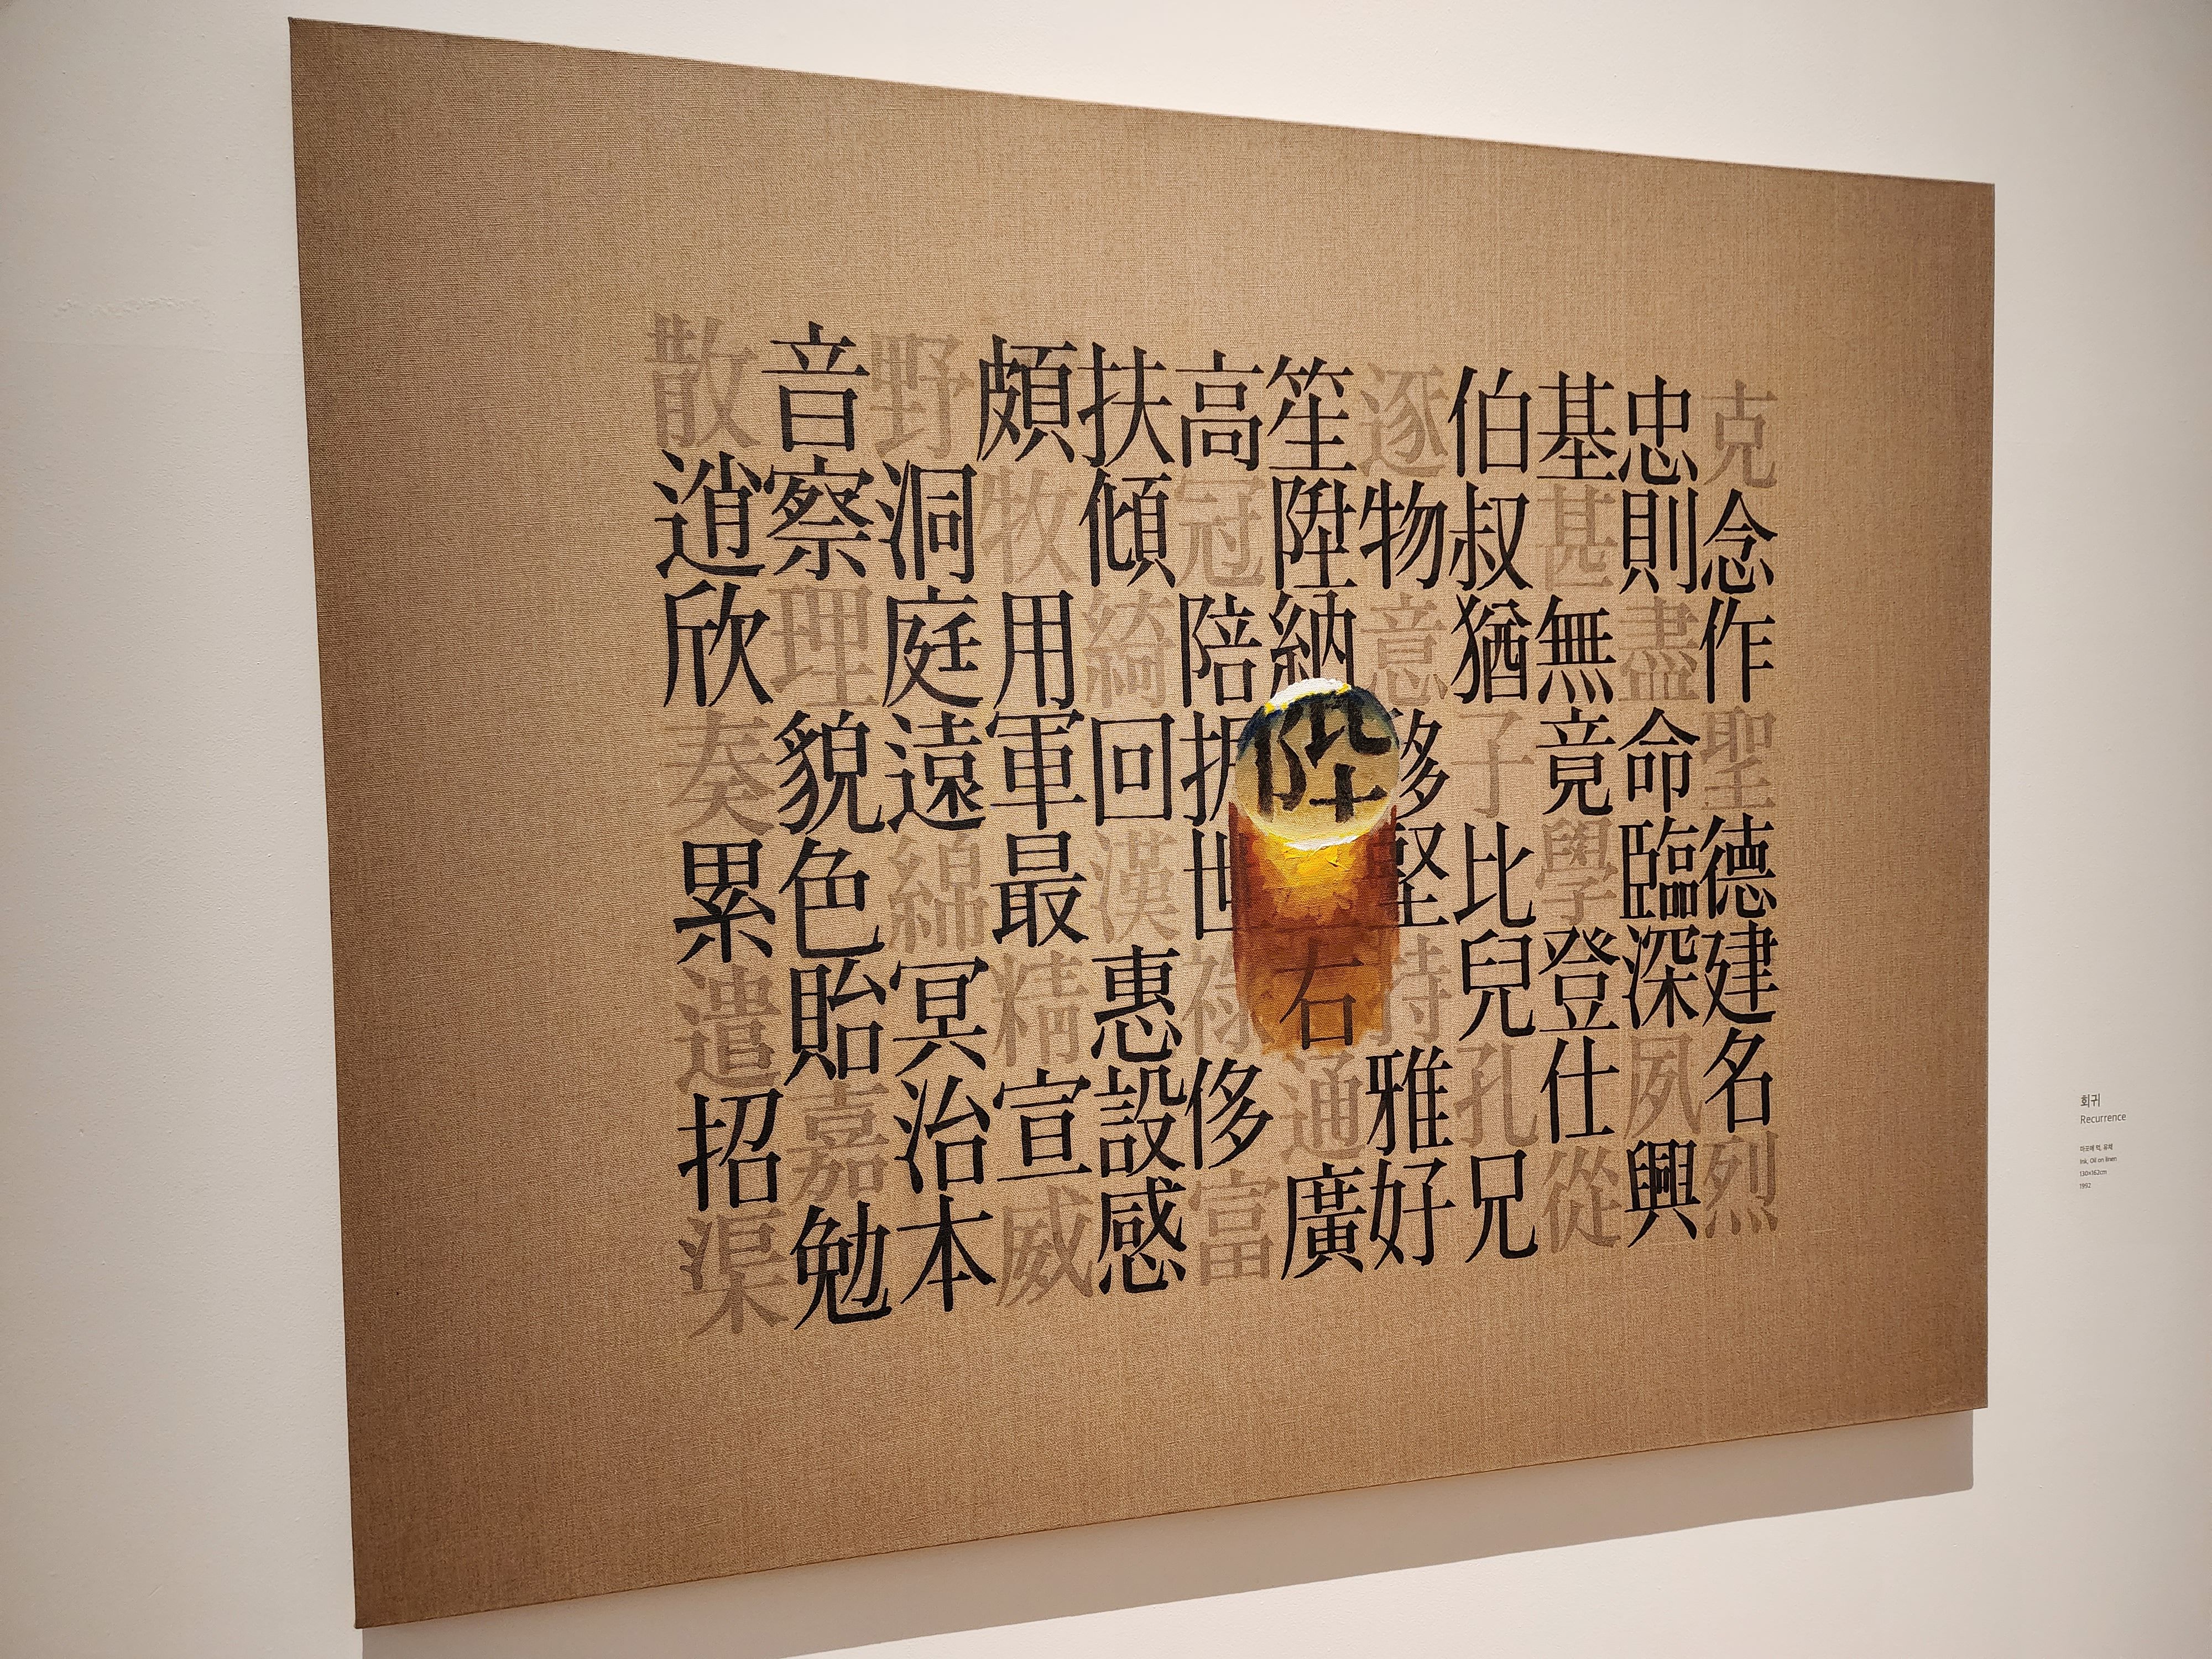 克念作聖德建名烈
忠則盡命臨深夙興
基甚無竟學登仕從
伯叔猶子比兒孔兄
逐物意移堅持雅好
笙陞納陛右通廣
高冠陪振世祿侈富
扶傾綺回漢惠設感
頗牧用軍最精宣威
野洞庭遠綿冥治本
音察理貌色貽嘉勉
散逍欣奏累遣招渠
회귀
Recurrence
마포에 먹, 유채
Ink, Oil on linen
130×162cm
1992